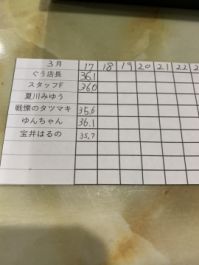 3月 17 18 19 20 21 22
ぐう店長 36.1
スタッフF 36.0
夏川みゆう
戦慄のタツマキ 35.6
ゆんちゃん 36.1
宝井はるの 35.7